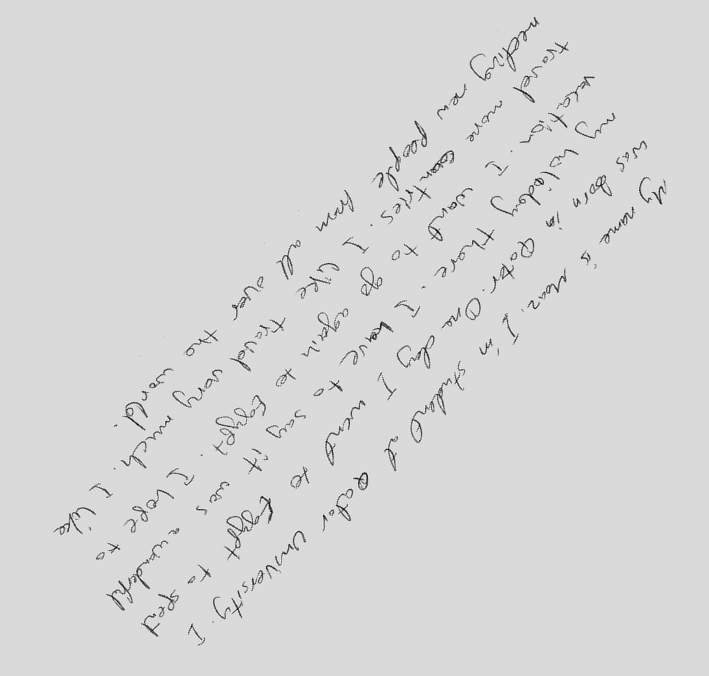 My name is Moaz. I'm student at Qatar University. I
was born in Qatar. One day I went to Egypt to spent
my holiday there. I have to say it was awonderful
vecation. I want to go again to Egypt. I hope to
travel more cuntries. I like travel very much. I like
meeting new people from all over the world.